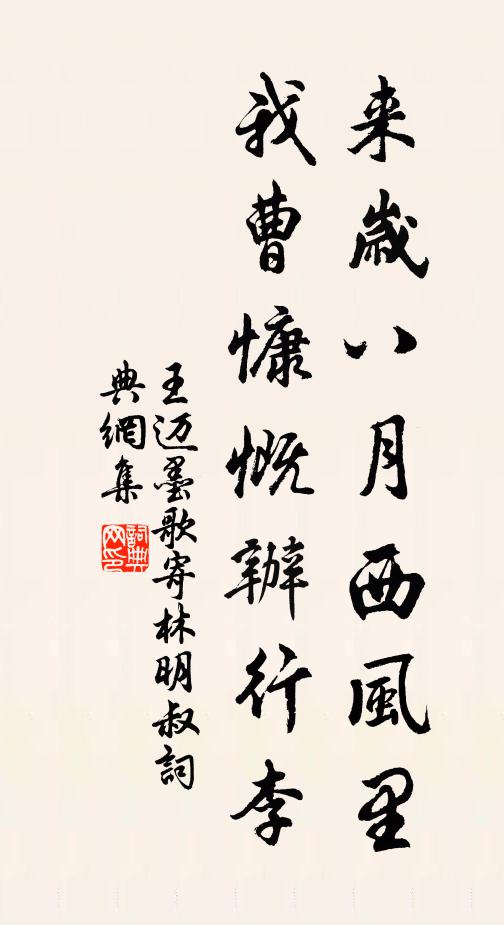 来歲八月西風里
我曹慷慨辦行李
王迈墨歌寄林明叔詞
典網集
詞典網印